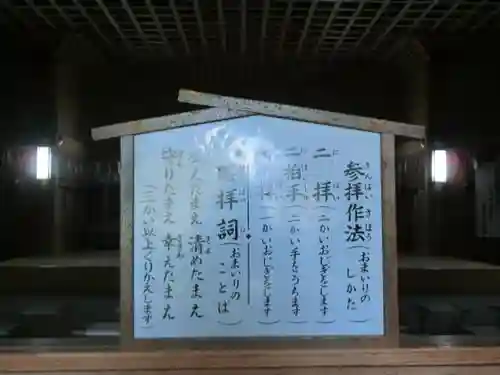 参拝作法（おまいりのしかた）
二拝（二かいおじぎをします）
二拍手（二かい手をうちます）
一拝（一かいおじぎをします）
拝詞（おまいりのことば）
たまえ 清めたまえ
りたまえ 幸えたまえ
（三かい以上くりかえします）